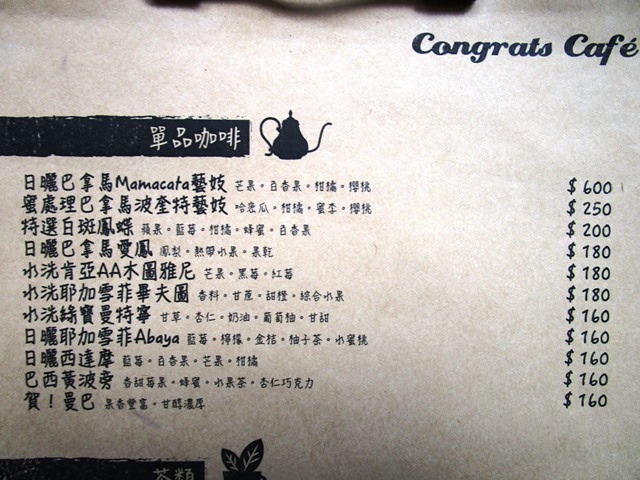 Congrats Café
單品咖啡
日曬巴拿馬Mamacata藝妓 芒果。百香果。柑橘。櫻桃 $600
蜜處理巴拿馬波奎特藝妓 哈密瓜。柑橘。蜜李。櫻桃 $250
特選白斑鳳蝶 蘋果。藍莓。柑橘。蜂蜜。百香果 $200
日曬巴拿馬愛鳳 鳳梨。熱帶水果。果乾 $180
水洗肯亞AA木圖雅尼 芒果。黑莓。紅莓 $180
水洗耶加雪菲畢夫圖 香料。甘蔗。甜橙。綜合水果 $180
水洗綠寶曼特寧 甘草。杏仁。奶油。葡萄柚。甘甜 $160
日曬耶加雪菲Abaya 藍莓。檸檬。金桔。柚子茶。水蜜桃 $160
日曬西達摩 藍莓。百香果。芒果。柑橘 $160
巴西黃波旁 香甜莓果。蜂蜜。水果茶。杏仁巧克力 $160
賀！曼巴 果香豐富。甘醇濃厚 $160
茶類